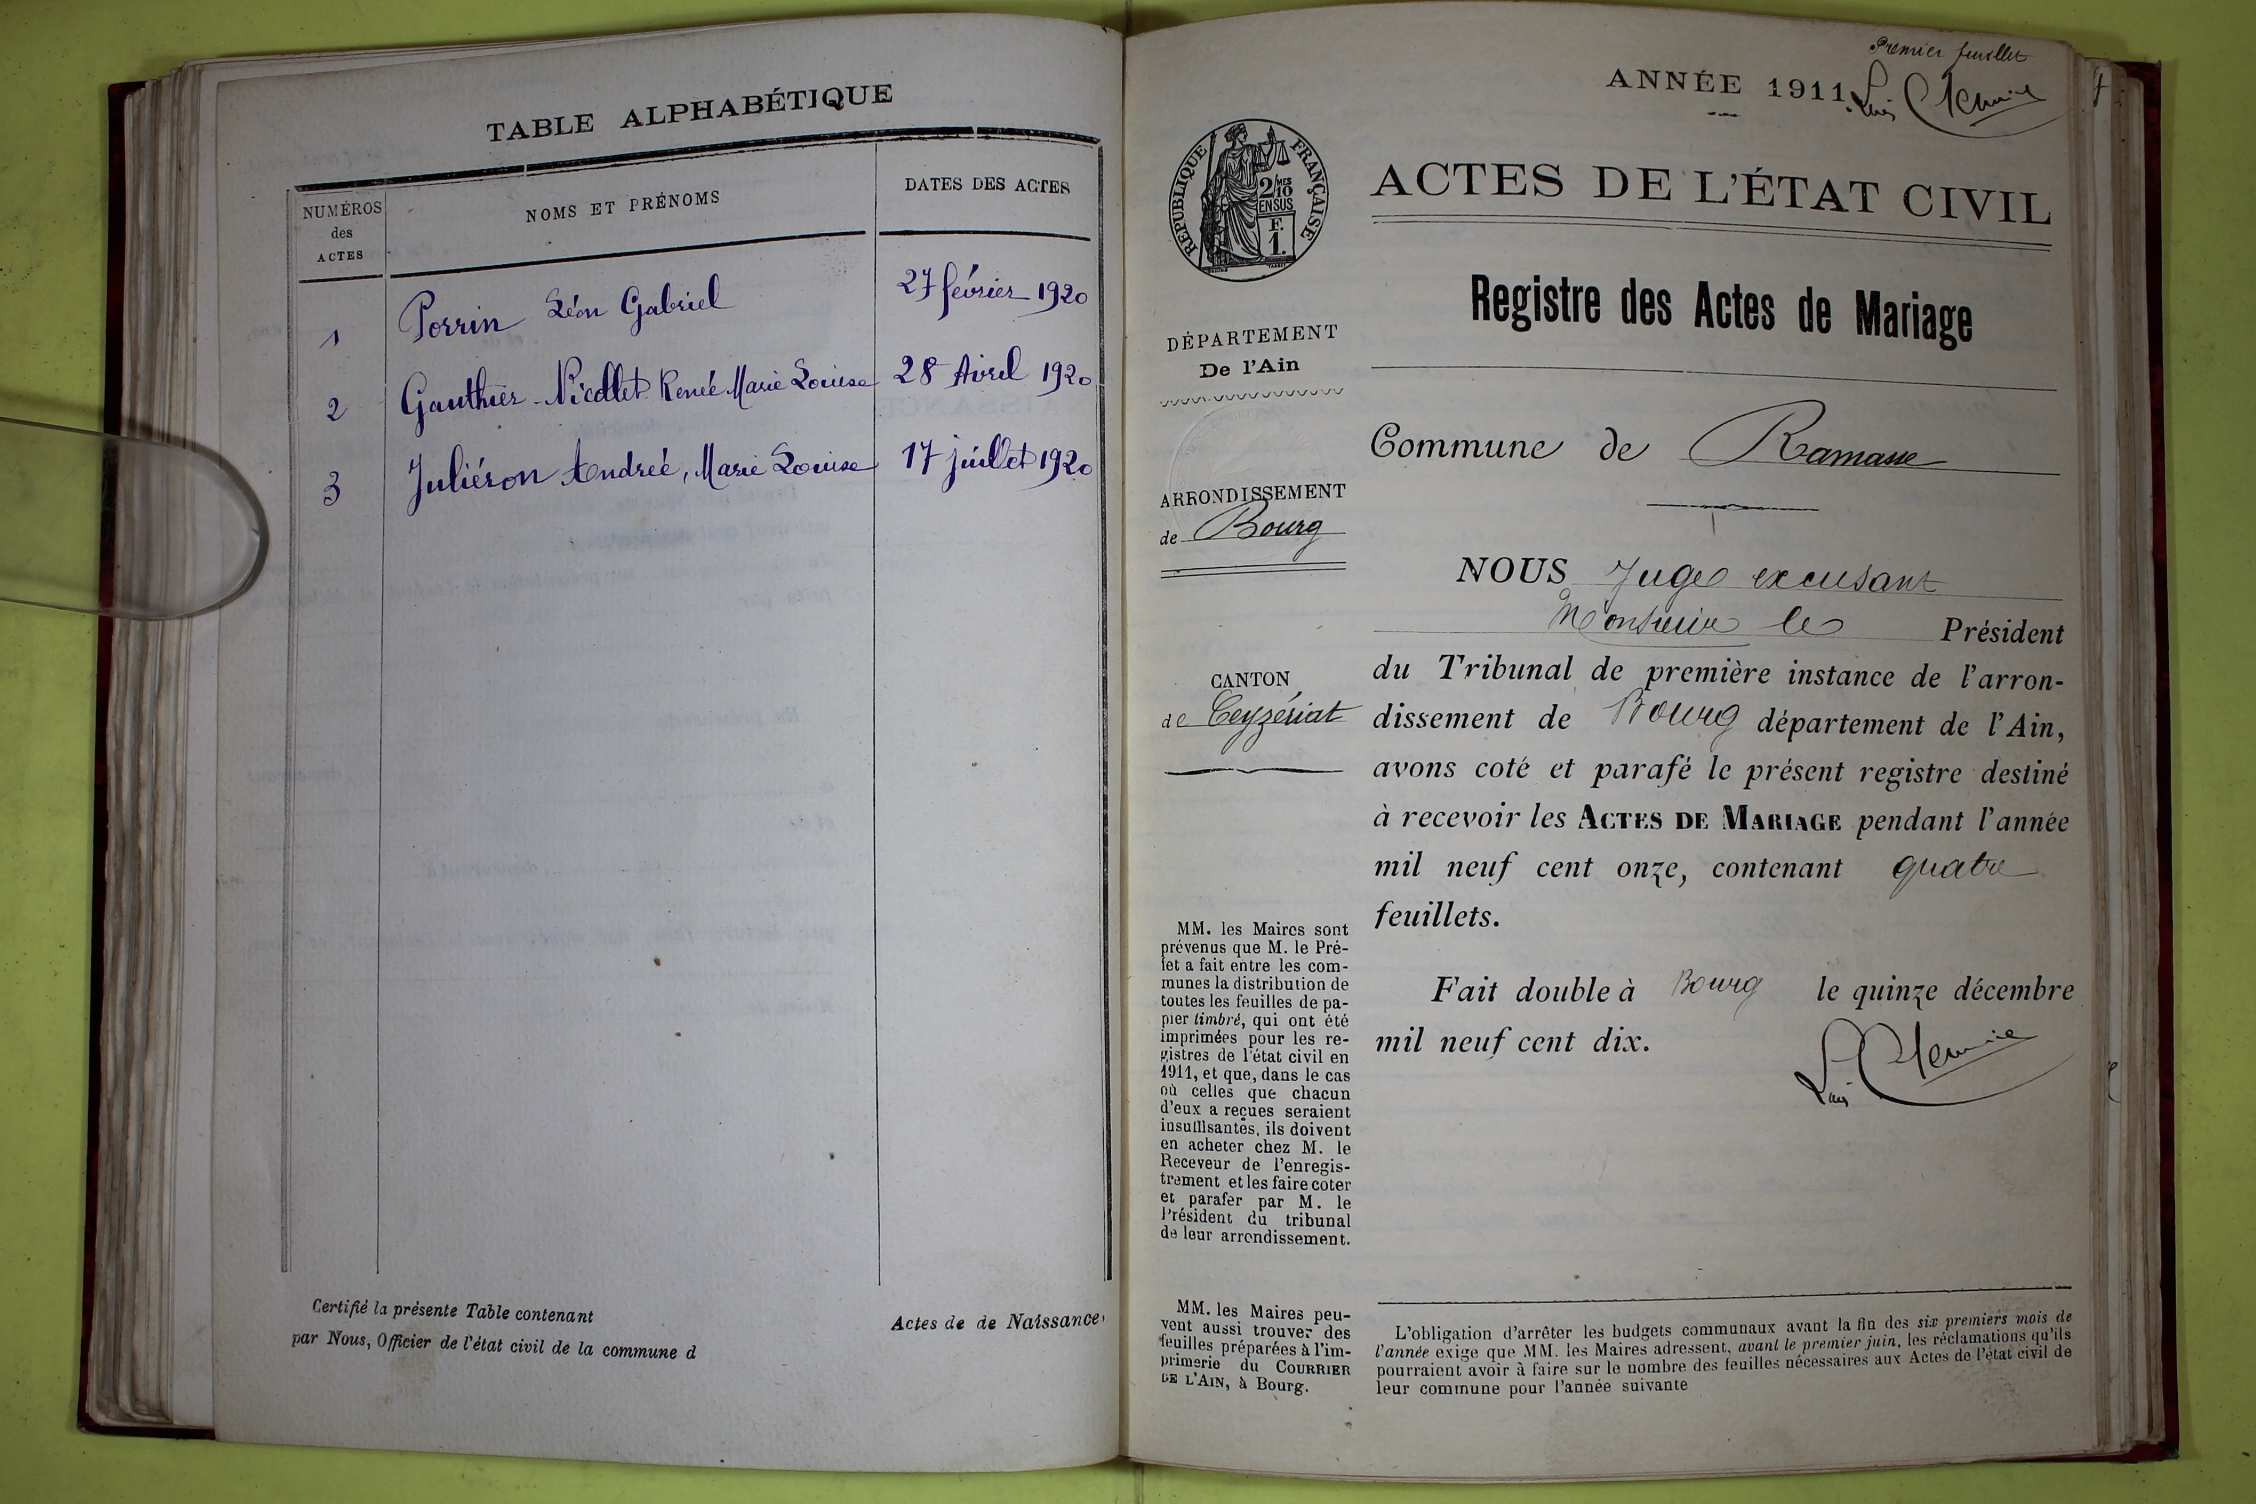 TABLE ALPHABÉTIQUE
NUMÉROS
des
ACTES
NOMS ET PRÉNOMS
DATES DES ACTES
1 Perrin Léon Gabriel 27 février 1920
2 Gauthier-Nicollet Renée Marie Louise 28 Avril 1920
3 Juliéron Andrée, Marie Louise 17 juillet 1920
Certifié la présente Table contenant
Actes de de Naissance
par Nous, Officier de l'état civil de la commune d
Premier feuillet
ANNÉE 1911.
RÉPUBLIQUE FRANÇAISE
2/10 MES
EN SUS
F.
1.
ACTES DE L'ÉTAT CIVIL
Registre des Actes de Mariage
DÉPARTEMENT
De l'Ain
Commune de Ramasse
ARRONDISSEMENT
de Bourg
CANTON
de Ceyzériat
NOUS Juge excusant
Monsieur le Président
du Tribunal de première instance de l'arron-
dissement de Bourg département de l'Ain,
avons coté et parafé le présent registre destiné
à recevoir les ACTES DE MARIAGE pendant l'année
mil neuf cent onze, contenant quatre
feuillets.
Fait double à Bourg le quinze décembre
mil neuf cent dix.
MM. les Maires sont
prévenus que M. le Pré-
fet a fait entre les com-
munes la distribution de
toutes les feuilles de pa-
pier timbré, qui ont été
imprimées pour les re-
gistres de l'état civil en
1911, et que, dans le cas
où celles que chacun
d'eux a reçues seraient
insuffisantes, ils doivent
en acheter chez M. le
Receveur de l'enregis-
trement et les faire coter
et parafer par M. le
Président du tribunal
de leur arrondissement.
MM. les Maires peu-
vent aussi trouver des
feuilles préparées à l'im-
primerie du COURRIER
DE L'AIN, à Bourg.
L'obligation d'arrêter les budgets communaux avant la fin des six premiers mois de
l'année exige que MM. les Maires adressent, avant le premier juin, les réclamations qu'ils
pourraient avoir à faire sur le nombre des feuilles nécessaires aux Actes de l'état civil de
leur commune pour l'année suivante